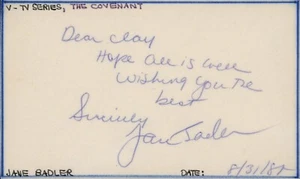 V-TV SERIES, THE COVENANT
Dear Clay
Hope all is well
Wishing you the
best
Sincerely
Jane Badler
JANE BADLER
DATE: 8/31/85